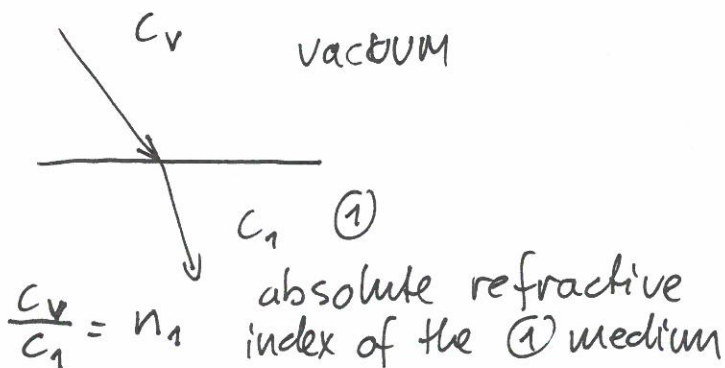 Cv vacuum
C1 ①
Cv/C1 = n1 absolute refractive
index of the ① medium